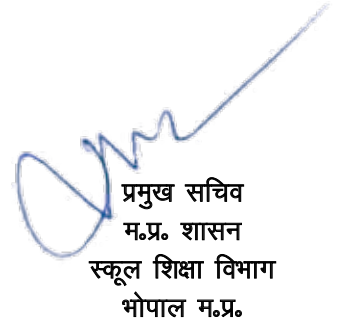 प्रमुख सचिव
म॰प्र॰ शासन
स्कूल शिक्षा विभाग
भोपाल म॰प्र॰